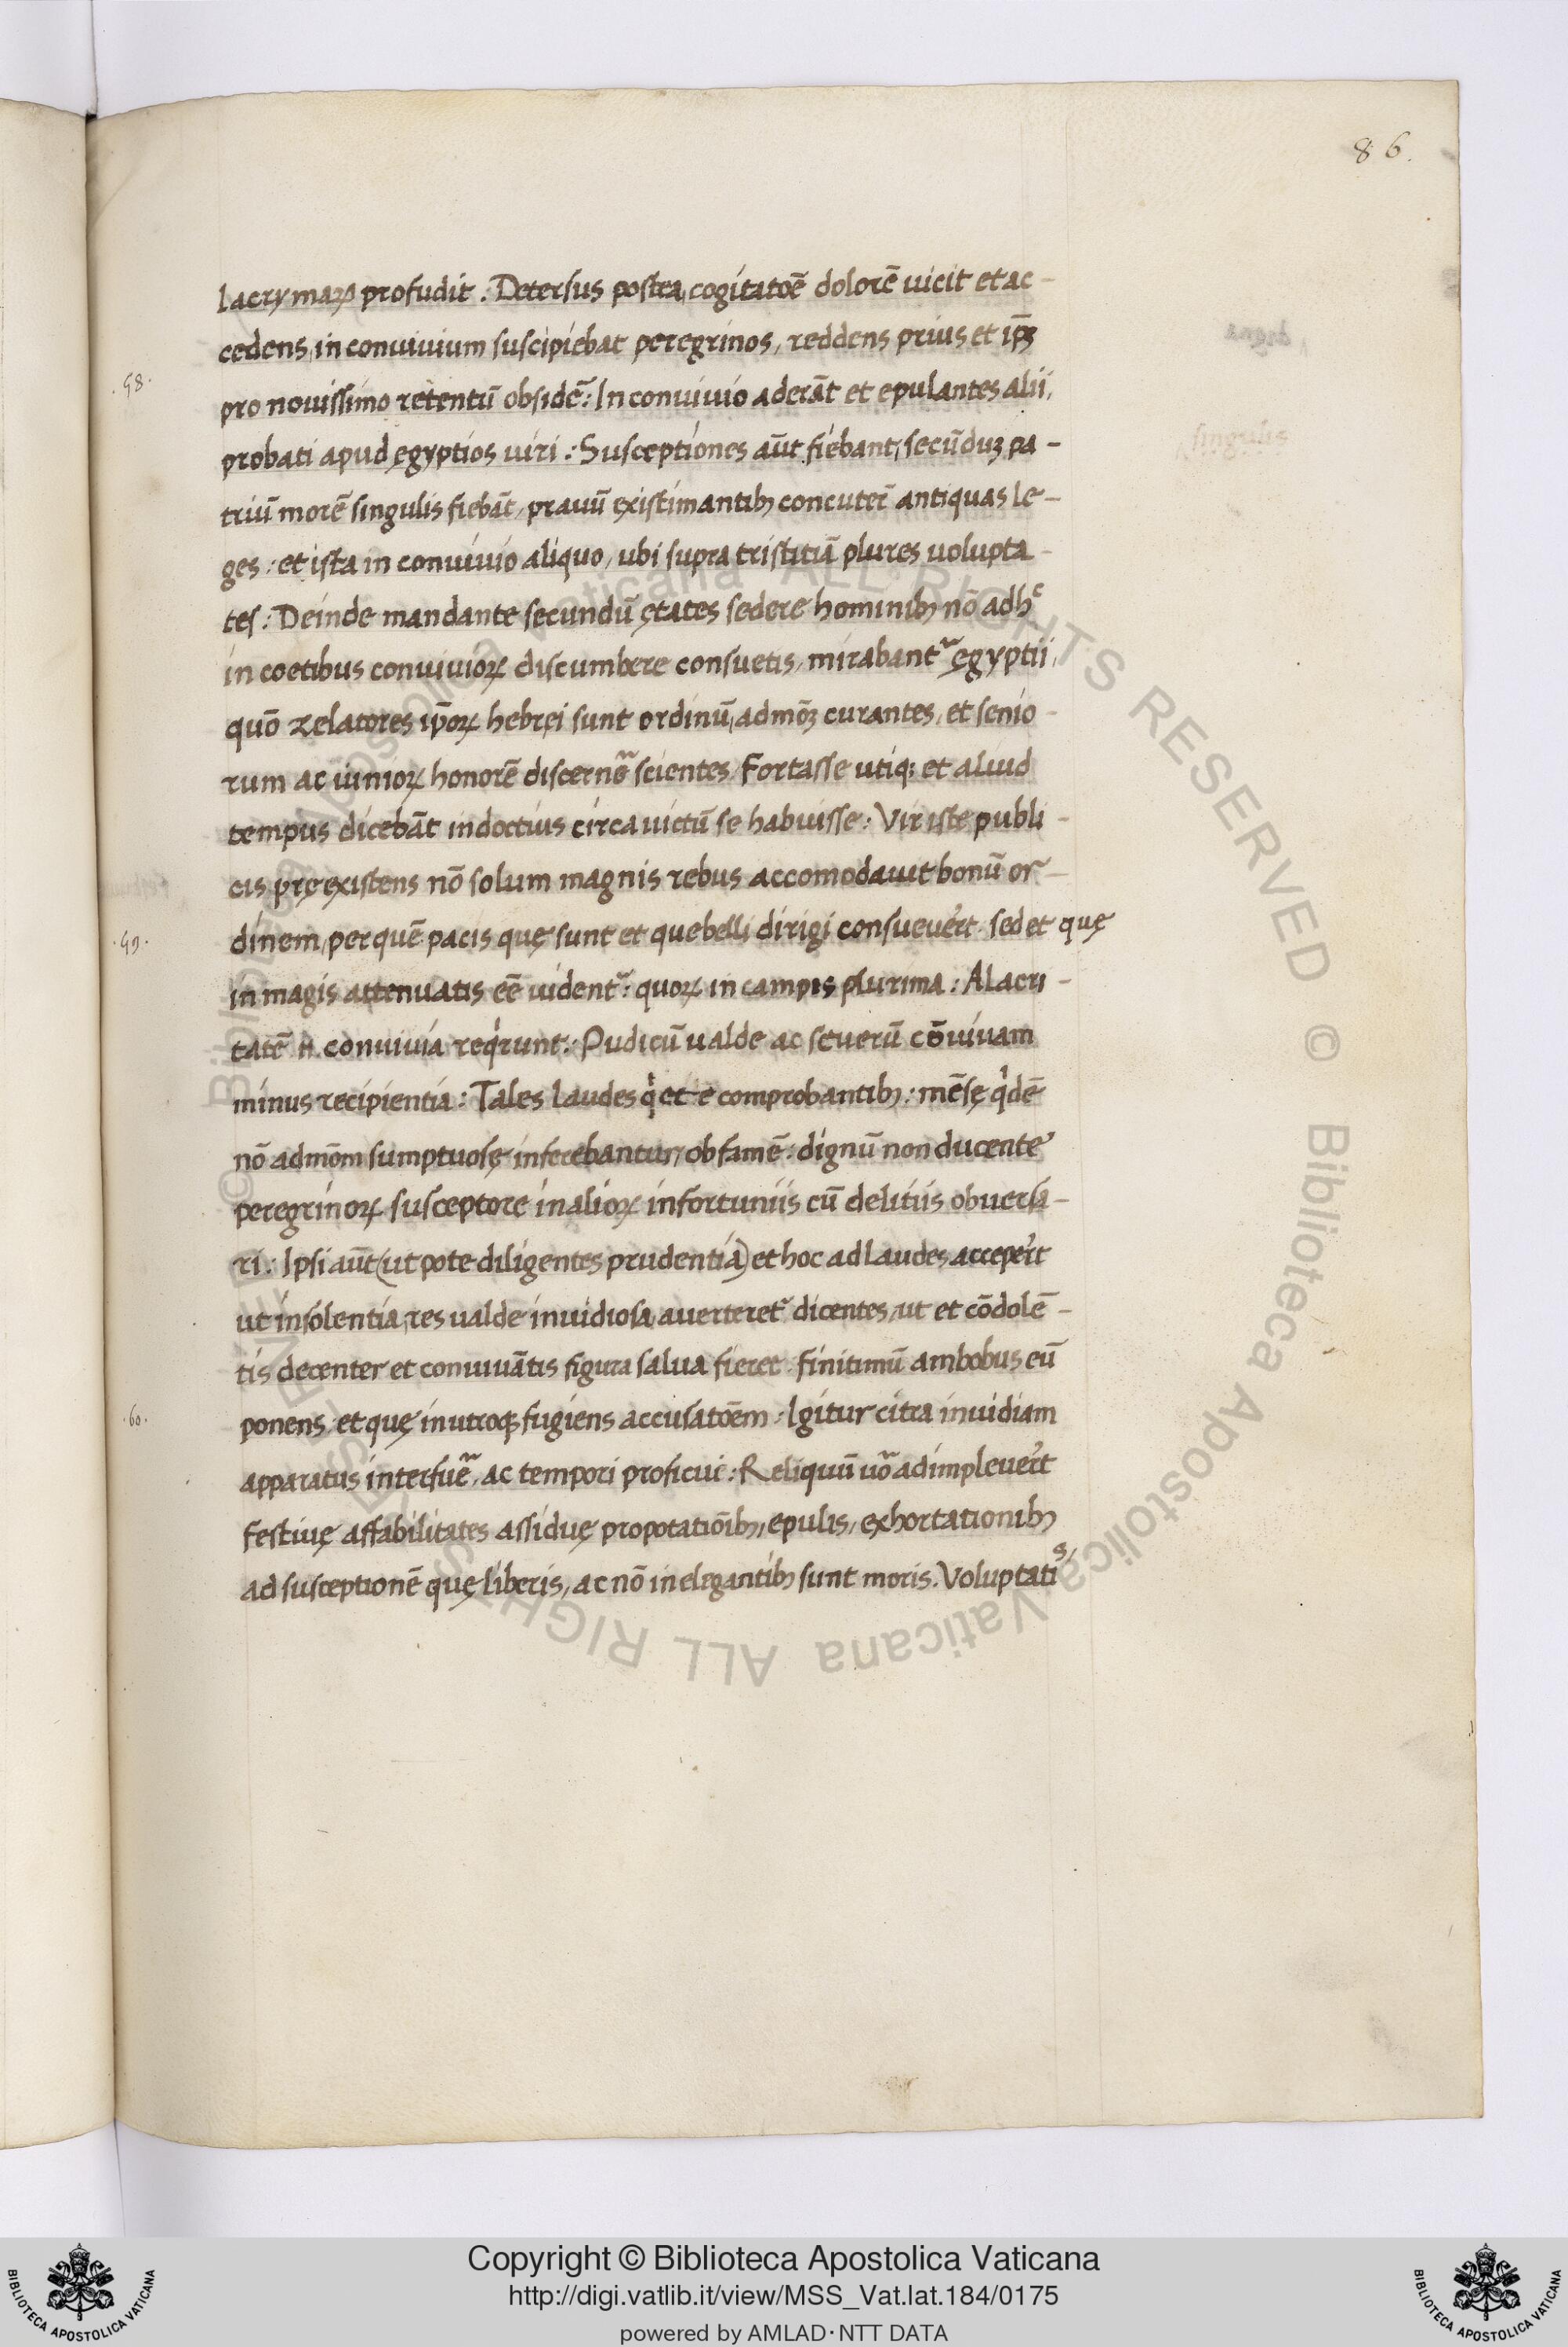 86.
lacrymaꝝ profudit : Detersus postea, cogitatōē dolorē uicit et ac-
cedens, in conuiuium suscipiebat peregrinos, reddens prius et ip̄ꝫ
.58.
pro nouissimo retentū obsidē : In conuiuio aderāt et epulantes alii,
probati apud ęgyptios uiri : Susceptiones aūt fiebant, secūduꝫ pa-
triū morē singulis fiebāt, prauū existimantibꝫ concuterē antiquas le-
ges : et ista in conuiuio aliquo, ubi supra tristitiā plures uolupta-
tes : Deinde mandante secundū ętates sedere hominibꝫ nō adhᶜ
in coetibus conuiuioꝝ discumbere consuetis, mirabantʳ ęgyptii,
quō zelatores ip̄oꝝ hebręi sunt ordinū, admōꝫ curantes, et senio-
rum ac iunioꝝ honorē discernē scientes, Fortasse utiqꝫ et aliud
tempus dicebāt indoctius circa uictū se habuisse : Vir iste publi-
cis pręexistens nō solum magnis rebus accomodauit bonū or-
.59.
dinem, per quē pacis quę sunt et que belli dirigi consueuer̄t. sed et quę
in magis attenuatis eē uidentʳ : quoꝝ in campis plurima : Alacri-
tatē n̄. conuiuia reqͥrunt : Pudicū ualde ac seuerū cōuiuam
minus recipientia : Tales laudes qͥete comprobantibꝫ : mēsę qͥdē
nō admōm sumptuosę inferebantur, ob famē : dignū non ducente
peregrinoꝝ susceptore in alioꝝ infortuniis cū delitiis obuersa-
ri : Ipsi aūt (ut pote diligentes prudentiā) et hoc ad laudes acceper̄t
ut insolentia, res ualde inuidiosa, auertereť dicentes, ut et cōdolē-
tis decenter et conuiuātis figura salua fieret. finitimū ambobus eū
.60.
ponens, et quę in utroqꝫ fugiens accusatōēm : Igitur citra inuidiam
apparatus interfuē, ac tempori proficuit : Reliquū uō adimpleuer̄t
festiuę affabilitates assiduę propotatiōibꝫ, epulis, exhortationibꝫ
ad susceptionē quę liberis, ac nō inelegantibꝫ sunt moris. Voluptatis,
singulis
Copyright © Biblioteca Apostolica Vaticana
http://digi.vatlib.it/view/MSS_Vat.lat.184/0175
powered by AMLAD·NTT DATA
BIBLIOTECA APOSTOLICA VATICANA
BIBLIOTECA APOSTOLICA VATICANA
© Biblioteca Apostolica Vaticana ALL RIGHTS RESERVED © Biblioteca Apostolica Vaticana ALL RIGHTS RESERVED